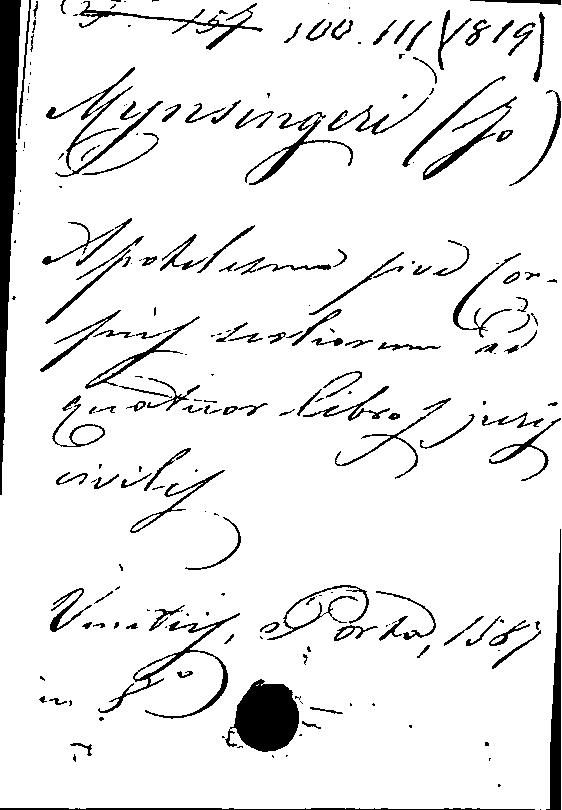 F. 157 100.III (1819)
Mynsingeri (Jo)
Apotelesma sive Cor-
pus scoliorum ad
quatuor libros juris
civilis
Venetiis, Porta, 1587
in 8°